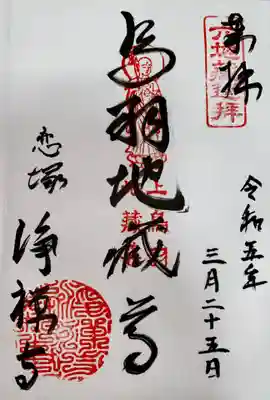 奉拝
六地蔵巡拝
令和五年
三月二十五日
鳥羽地蔵尊
恋塚
浄禅寺